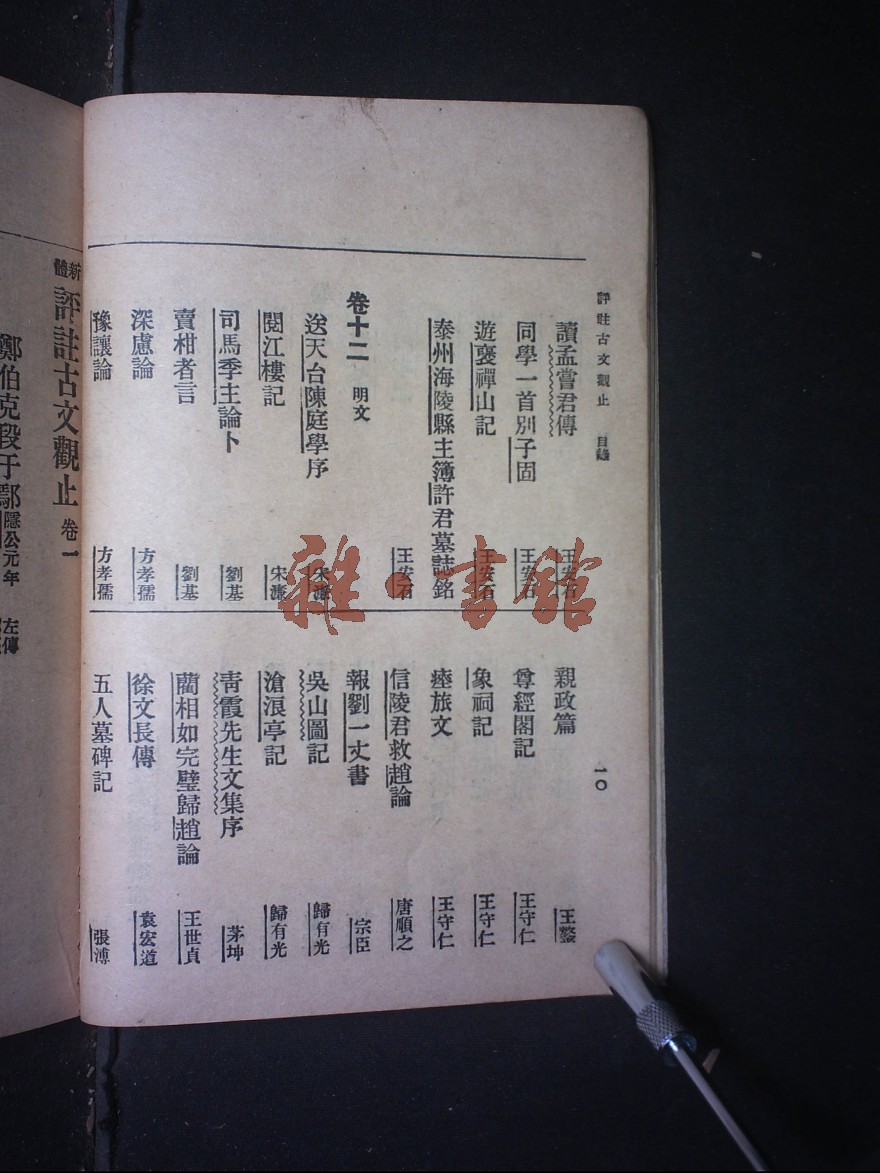 評註古文觀止 目錄 一〇
讀孟嘗君傳 王安石
同學一首別子固 王安石
遊襃禪山記 王安石
泰州海陵縣主簿許君墓誌銘 王安石
卷十二 明文
送天台陳庭學序 宋濂
閱江樓記 宋濂
司馬季主論卜 劉基
賣柑者言 劉基
深慮論 方孝孺
豫讓論 方孝孺
親政篇 王鏊
尊經閣記 王守仁
象祠記 王守仁
瘞旅文 王守仁
信陵君救趙論 唐順之
報劉一丈書 宗臣
吳山圖記 歸有光
滄浪亭記 歸有光
青霞先生文集序 茅坤
藺相如完璧歸趙論 王世貞
徐文長傳 袁宏道
五人墓碑記 張溥
新體評註古文觀止 卷一
鄭伯克段于鄢 隱公元年 左傳
雜·書館